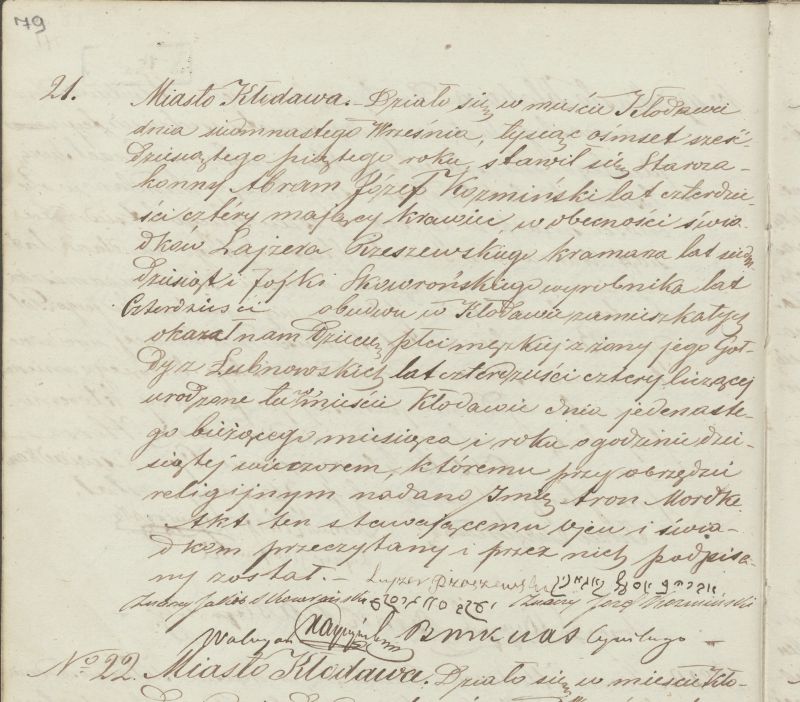 79
21. Miasto Kłodawa. Działo się w mieście Kłodawie
dnia siomnastego Września, tysiąc osmset sześć-
dziesiątego piątego roku, stawił się Starza-
konny Abram Józef Koźmiński lat czterdzie-
ści cztéry mający krawiec, w obecności świa-
dków Lajzera Rzeszewskiego kramarza lat siedm
dziesiąt i Joski Skowrońskiego wyrobnika lat
Czterdzieści obudwu w Kłodawie zamieszkałych
okazał nam Dziecię płci męzkiej z żony jego Goł-
dy z Lubnowskich lat czterdzieści cztery liczącej
urodzone tu w mieście Kłodawie dnia jedenaste-
go bieżącego miesiąca i roku o godzinie dzie-
siątej wieczorem, któremu przy obrzędzie
religijnym nadano Imię Aron Mordke
Akt ten stawającemu ojcu i świa-
dkom przeczytany i przez nich podpisa-
ny został. –
Cywilnego
No 22. Miasto Kłodawa. Działo się w mieście Kło-